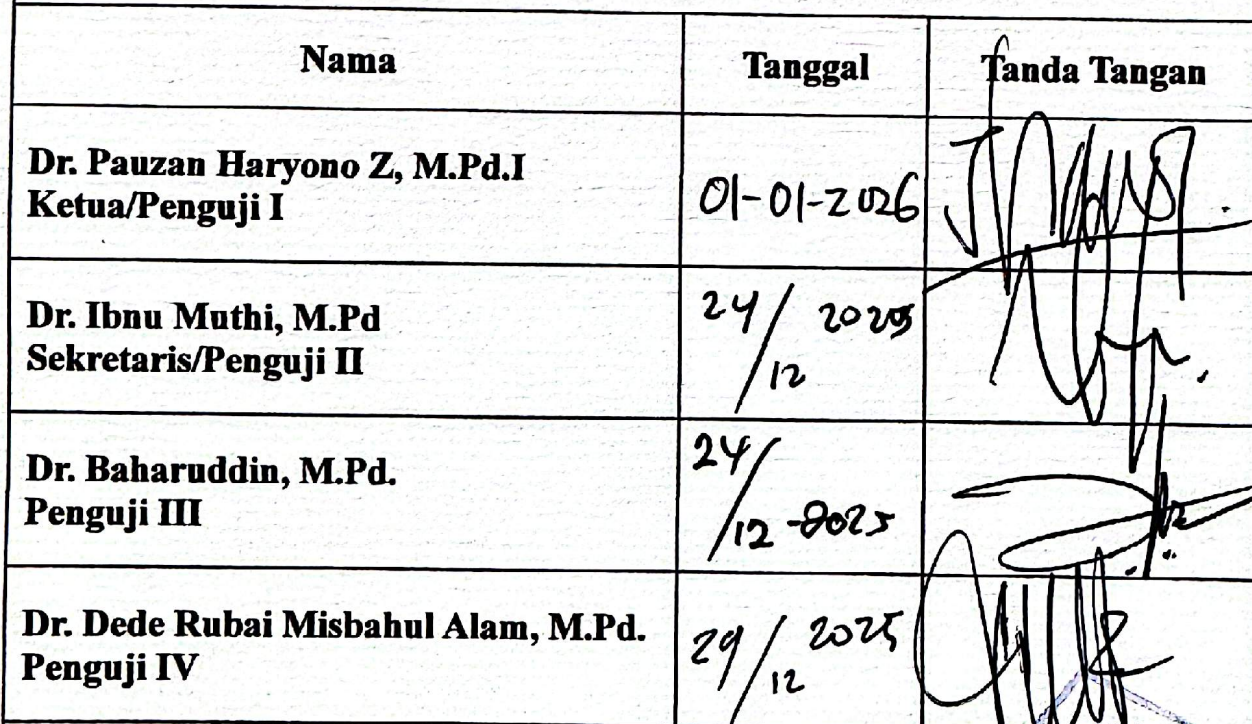 Nama Tanggal Tanda Tangan
Dr. Pauzan Haryono Z, M.Pd.I
Ketua/Penguji I
01-01-2026
Dr. Ibnu Muthi, M.Pd
Sekretaris/Penguji II
24/12 2025
Dr. Baharuddin, M.Pd.
Penguji III
24/12-2025
Dr. Dede Rubai Misbahul Alam, M.Pd.
Penguji IV
29/12 2025